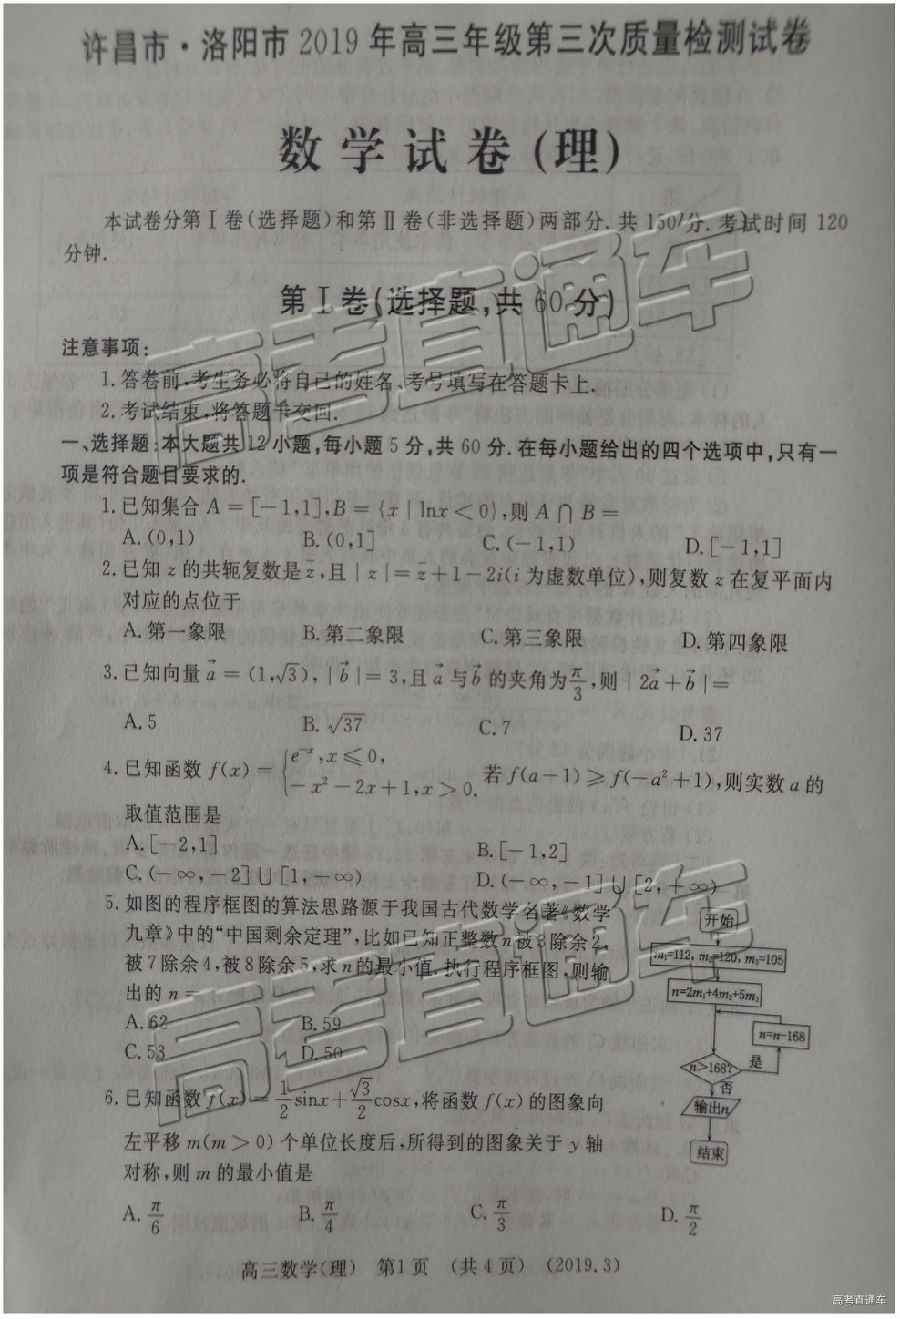 许昌市·洛阳市2019年高三年级第三次质量检测试卷
数学试卷(理)
本试卷分第Ⅰ卷(选择题)和第Ⅱ卷(非选择题)两部分.共150分.考试时间120
分钟.
第Ⅰ卷(选择题,共60分)
注意事项:
1.答卷前,考生务必将自己的姓名、考号填写在答题卡上.
2.考试结束,将答题卡交回.
一、选择题:本大题共12小题,每小题5分,共60分.在每小题给出的四个选项中,只有一
项是符合题目要求的.
1.已知集合 A=[-1,1],B={x|lnx<0},则 A∩B=
A.(0,1) B.(0,1] C.(-1,1) D.[-1,1]
2.已知 z 的共轭复数是 z̄,且|z|=z̄+1-2i(i为虚数单位),则复数 z 在复平面内
对应的点位于
A.第一象限 B.第二象限 C.第三象限 D.第四象限
3.已知向量 a⃗=(1,√3),|b⃗|=3,且 a⃗ 与 b⃗ 的夹角为 π/3,则|2a⃗+b⃗|=
A.5 B.√37 C.7 D.37
4.已知函数 f(x)={e^(-x),x≤0, -x²-2x+1,x>0. 若 f(a-1)≥f(-a²+1),则实数 a 的
取值范围是
A.[-2,1] B.[-1,2]
C.(-∞,-2]∪[1,-∞) D.(-∞,-1]∪[2,+∞)
5.如图的程序框图的算法思路源于我国古代数学名著《数学
九章》中的“中国剩余定理”,比如已知正整数n被3除余2,
被7除余4,被8除余5,求n的最小值.执行程序框图,则输
出的 n=
A.62 B.59
C.53 D.50
开始
m₁=112, m₂=120, m₃=105
n=2m₁+4m₂+5m₃
n=n-168
n>168?
是
否
输出n
结束
6.已知函数 f(x)=1/2 sinx+√3/2 cosx,将函数 f(x)的图象向
左平移 m(m>0)个单位长度后,所得到的图象关于 y 轴
对称,则 m 的最小值是
A.π/6 B.π/4 C.π/3 D.π/2
高三数学(理) 第1页 (共4页) (2019.3)
高考直通车
高考直通车
高考直通车